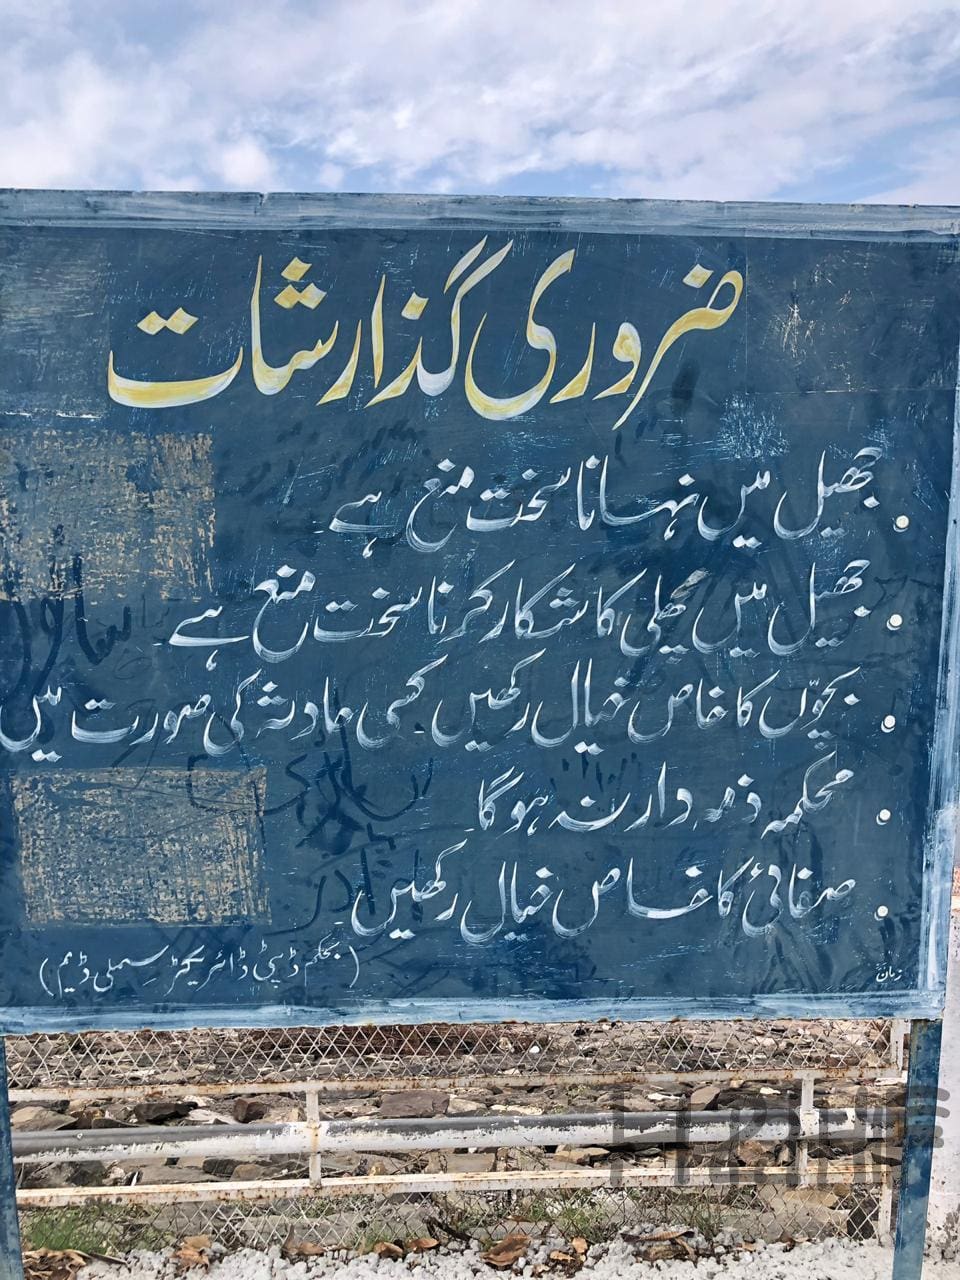 ضروری گذارشات
• جھیل میں نہانا سخت منع ہے
• جھیل میں مچھلی کا شکار کرنا سخت منع ہے
• بچوّں کا خاص خیال رکھیں کسی حادثہ کی صورت میں
• محکمہ ذمہ دار نہ ہوگا
• صفائی کا خاص خیال رکھیں
زمان
(بحکم ڈپٹی ڈائریکٹر سملی ڈیم)